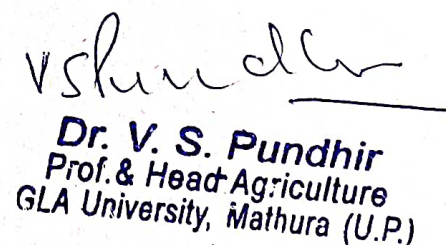 VSPundhir
Dr. V. S. Pundhir
Prof. & Head Agriculture
GLA University, Mathura (U.P.)